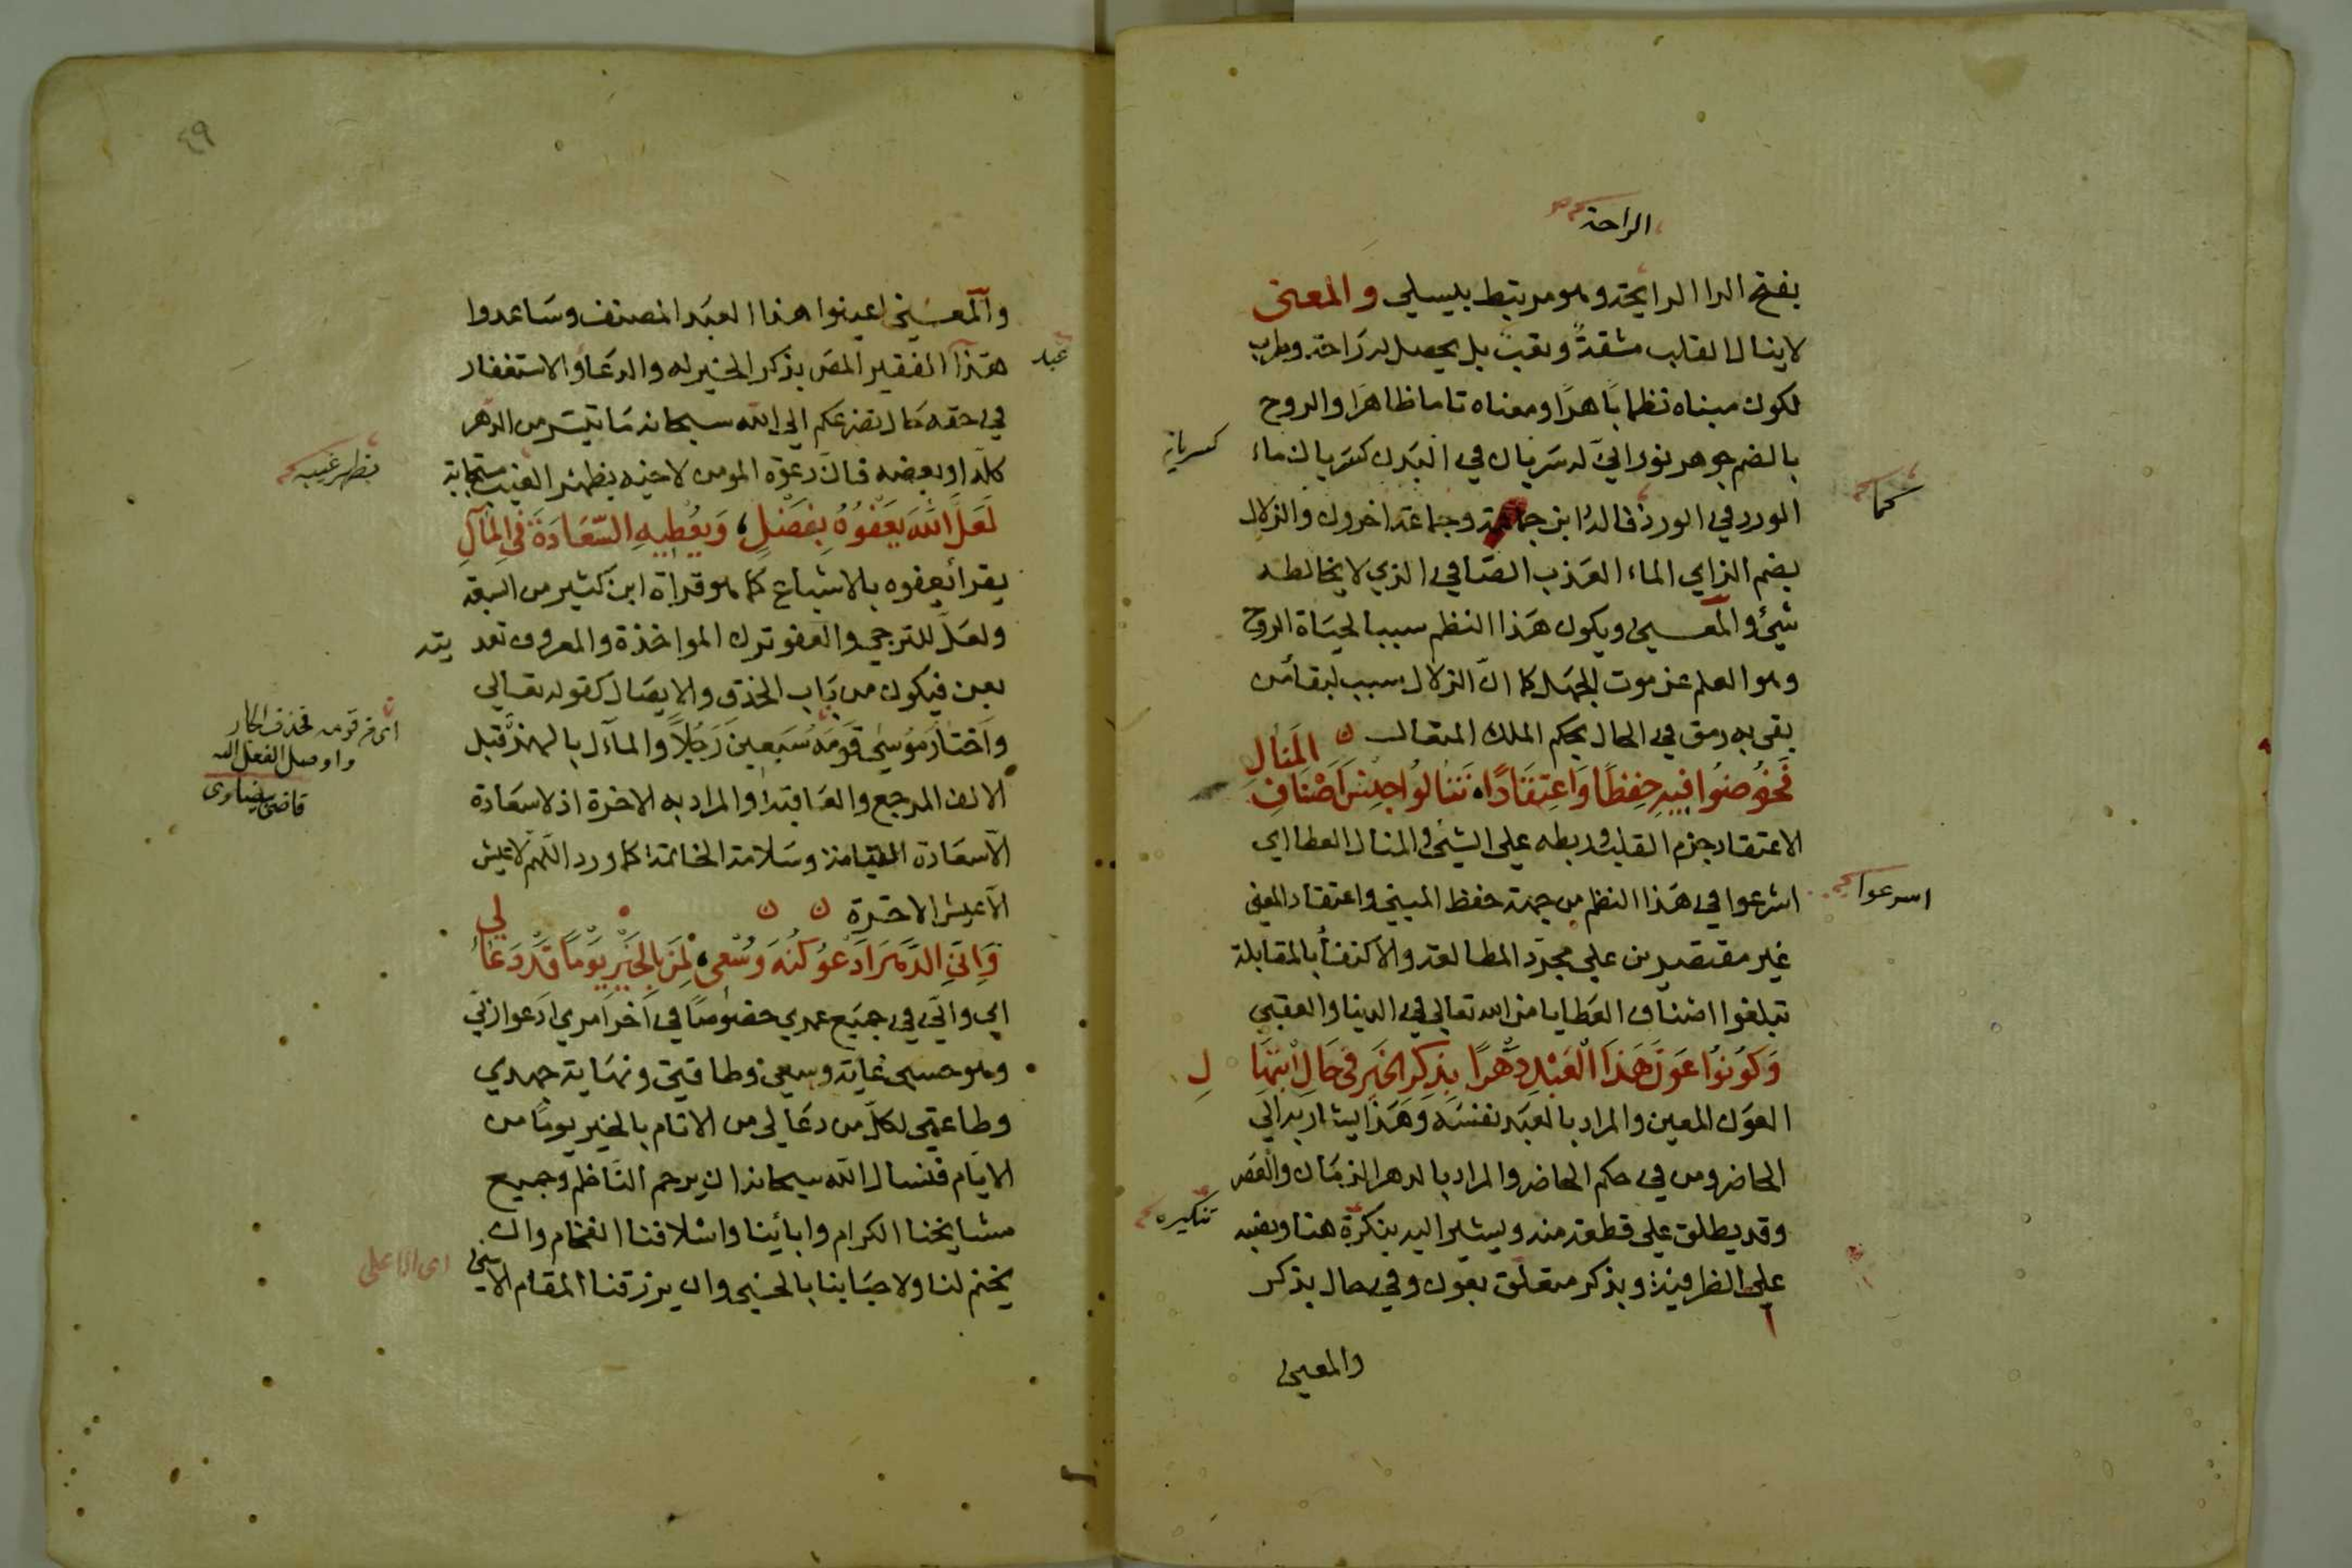 الراحة
بفتح الرا الرايحة وهو مرتبط بيسلي والمعنى
لا ينال القلب مشقةً وتعبٌ بل يحصل له رَاحة وطرب
لكون مبناه نظما بَاهرًا ومعناه تاما ظاهرًا والروح
بالضم جوهر نورانيّ له سَريان في البَدن كسَريان ماء
كسريانه
الورد في الورد قاله ابن جماعة وجماعة اخرون والزلال
كما
بضم الزاي الماء العَذب الصَافي الذي لا يخالطه
شيئ والمعسى ويكون هَذا النظم سببا لحيَاة الروح
وهو العلم عن موت الجهل كما انّ الزلال سبب لبقأ من
بقى به رمق في الحال بحكم الملك المتعال
فَخُوضُوا فِيهِ حِفظًا وَاعتِقَادًا، تَنَالُوا جِنْسَ اَصْنَافِ المَنالِ
الاعتقاد جزم القلب وربطه على الشيئ والمنال العطا اي
اشرعوا في هَذا النظم من جهة حفظ المبنى واعتقاد المعنى
اسرعوا
غير مقتصرين على مجرّد المطالعة والاكتفأ بالمقابلة
تبلغوا اصْنَاف العَطايا من الله تعالى في الدنيا والعقبى
وَكُونُوا عَونَ هَذَا الْعَبْدِ دَهْرًا بِذِكرِ الخَيرِ في حَالِ ابْتِهَا لِ
العوَن المعين والمراد بالعبَد نفسَه وَهَذا يشار به الى
الحاضر ومن في حكم الحاضر والمراد بالدهر الزمَان والعَصر
وقد يطلق على قطعة منه ويشير اليه بنكرَة هنا ونصبه
تنكيره
على الظرفية وبذكر متعلّق بعَون وفي حال بذكر
والمعنى
٤٩
والمعسنى اعينوا هذا العبَد المصنف وسَاعدوا
هَذا الفقير المصَ بذكر الخير له والدعَاؤ الاستغفار
عبد
في حقه حَال تضرعكم الى الله سبحانه مَا تيسّر من الدهر
كله او بعضه فان دعوَة المومن لاخيه بظهر الغيب مستجابة
بظهر غيبه
لَعَلَّ اللهَ يَعْفُوهُ بِفَضْلٍ، وَيُعْطِيهِ السَّعَادَةَ في المَآلِ
يقرا يعفوه بالاشباع كما هو قراة ابن كثير من السبعة
ولعَلّ للترجي والعَفو ترك المواخذة والمعروف تعد يته
بعن فيكون من بَاب الحذف والايصَال كقوله تعَالى
واَختارَ مُوسى قَومَهُ سَبعِينَ رَجُلًا والمآل بالهمز قبل
اى من قومه فحذف الجار
واوصل الفعل اليه
قاضى بيضاوى
الالف المرجع والعَاقبة والمراد به الاخرة اذ لا سَعَادة
الّا سَعَادة القيامة وسَلامة الخاتمة كما ورد اللهم لا عيش
الّا عيش الاخرة
وَاِنّي الدَّهرَ اَدعُو كُنْهَ وُسْعِى، لِمَن بِالخَيْرِ يَومًا قَدْ دَعَا لي
اي وانّي في جميَع عمري خصُوصًا في آخر امري ادعوا ربّي
وهو حسبى غاية وسعي وطاقتي ونهَاية جهدي
وطاعتي لكلّ من دعَا لي من الانام بالخير يومًا من
الايَام فنسال الله سبحانه ان يرحم الناظم وجميع
مشايخنا الكرام وابائينا واسْلافنا الفخام وان
يختم لنا ولاحبَابنا بالحسنى وان يرزقنا المقام الاسنى
اى الاعلى